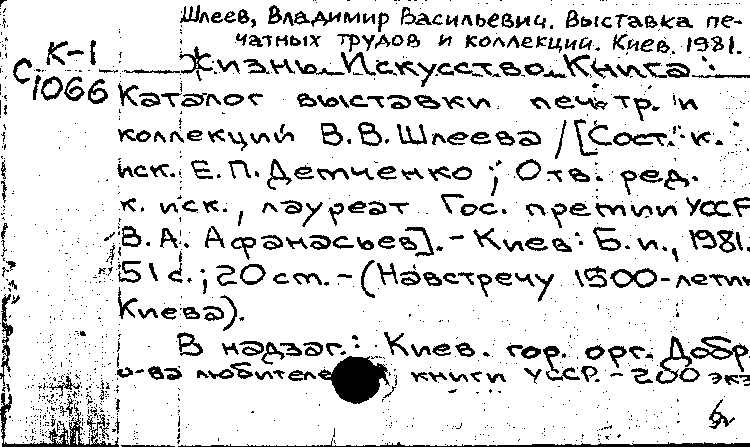 Шлеев, Владимир Васильевич. Выставка пе-
чатных трудов и коллекций. Киев. 1981.
К-1
С1066
Жизнь. Искусство. Книга:
Каталог выставки печ. тр. и
коллекций В.В. Шлеева / [Сост.: к.
иск. Е.П. Детченко; Отв. ред.
к. иск., лауреат Гос. премии УССР
В.А. Афанасьев]. - Киев: Б. и., 1981.
51 с.; 20 см. - (Навстречу 1500-летию
Киева).
В надзаг.: Киев. гор. орг. Добр.
о-ва любителей книги УССР. - 200 экз